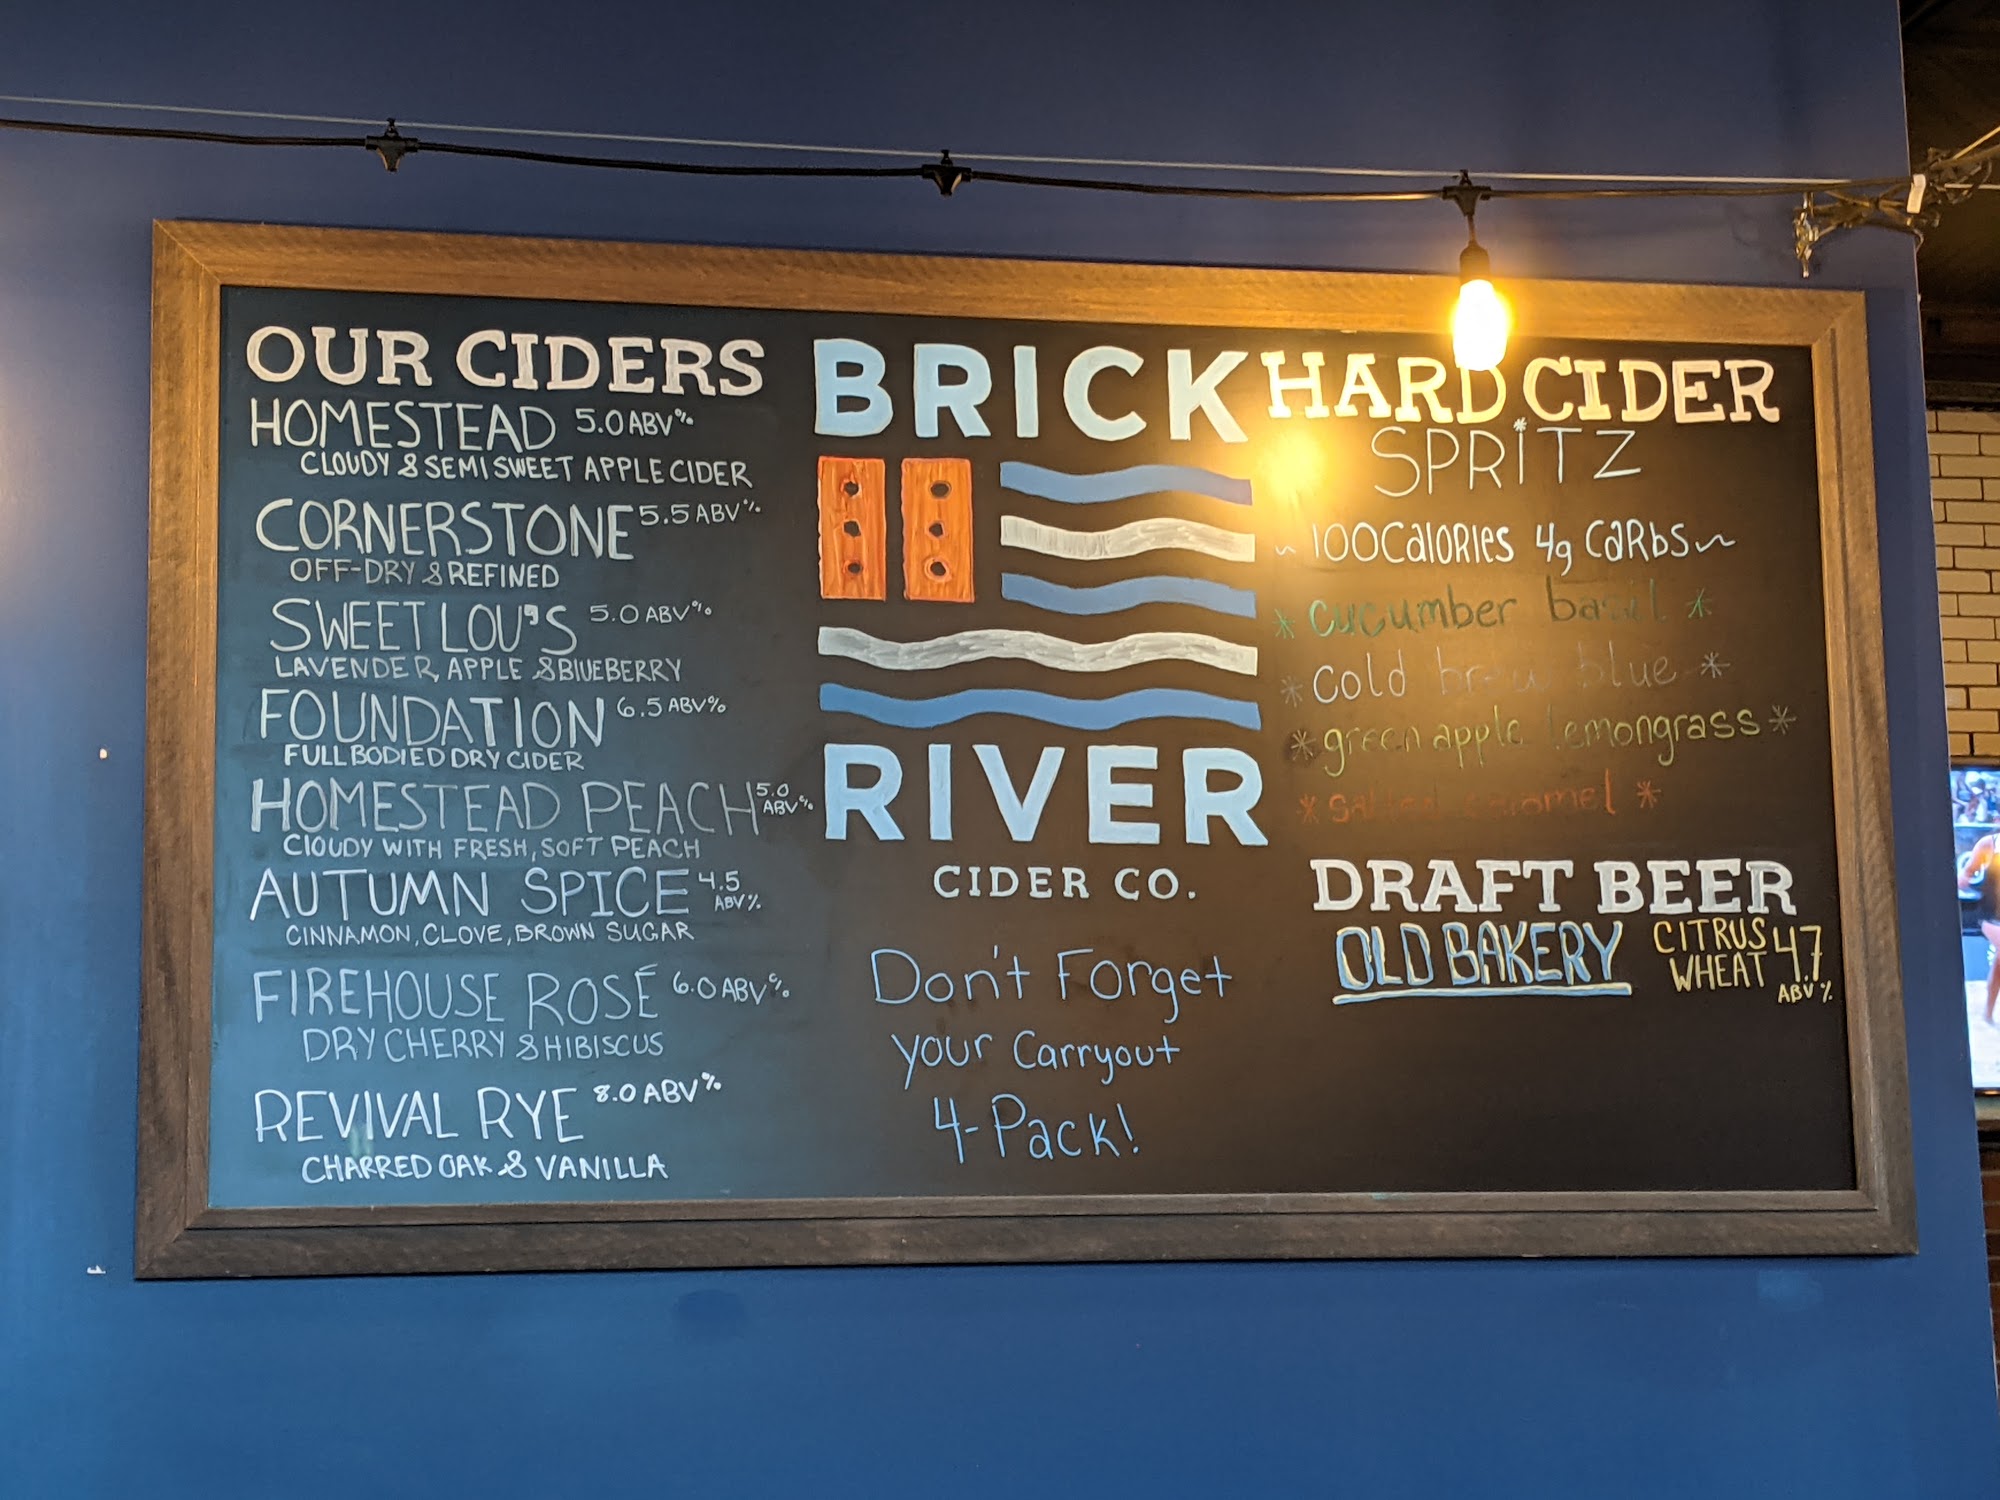 OUR CIDERS
HOMESTEAD 5.0 ABV%
CLOUDY & SEMI SWEET APPLE CIDER
CORNERSTONE 5.5 ABV%
OFF-DRY & REFINED
SWEET LOU'S 5.0 ABV%
LAVENDER, APPLE & BLUEBERRY
FOUNDATION 6.5 ABV%
FULL BODIED DRY CIDER
HOMESTEAD PEACH 5.0 ABV%
CLOUDY WITH FRESH, SOFT PEACH
AUTUMN SPICE 4.5 ABV%
CINNAMON, CLOVE, BROWN SUGAR
FIREHOUSE ROSÉ 6.0 ABV%
DRY CHERRY & HIBISCUS
REVIVAL RYE 8.0 ABV%
CHARRED OAK & VANILLA
BRICK
RIVER
CIDER CO.
Don't Forget
your Carryout
4-Pack!
HARD CIDER
SPRITZ
~ 100 Calories 4g Carbs ~
* cucumber basil *
* cold brew blue *
* green apple lemongrass *
* salted caramel *
DRAFT BEER
OLD BAKERY CITRUS WHEAT 4.7 ABV%